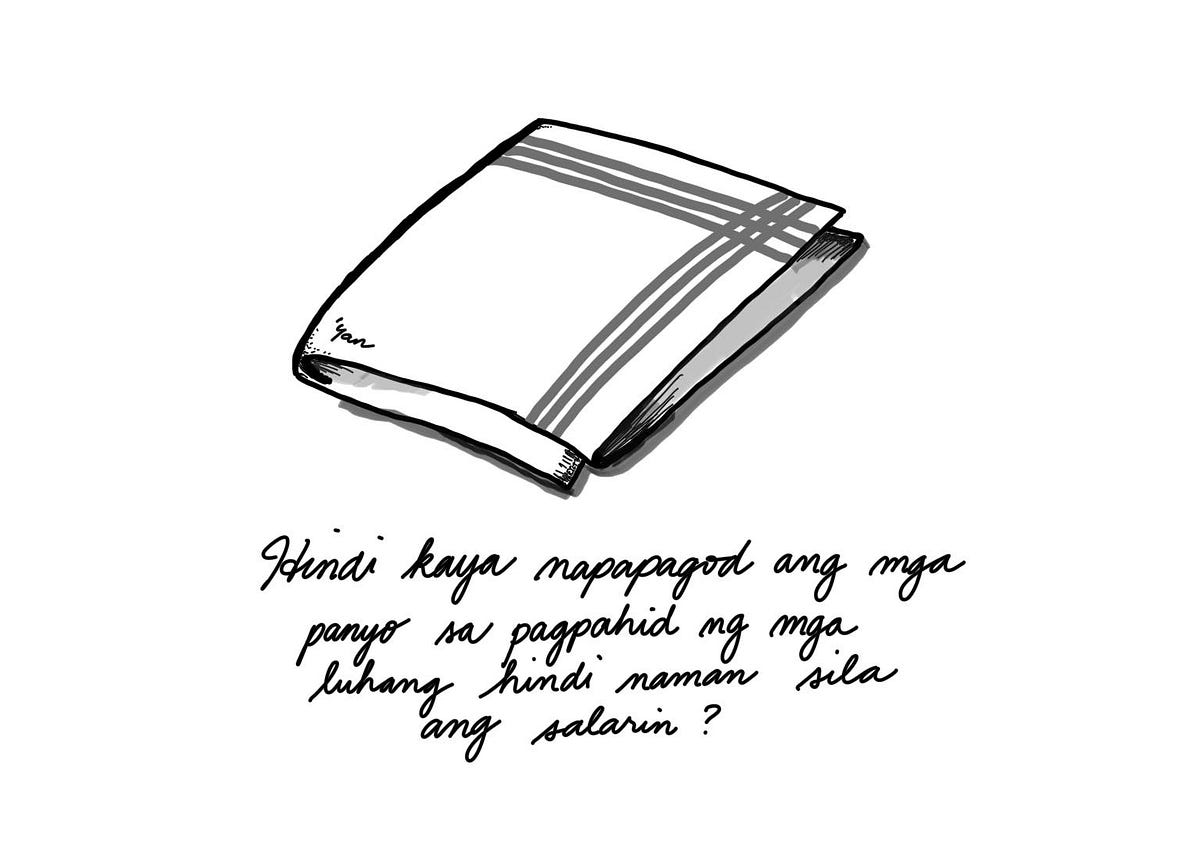 'Yan
Hindi kaya napapagod ang mga
panyo sa pagpahid ng mga
luhang hindi naman sila
ang salarin?